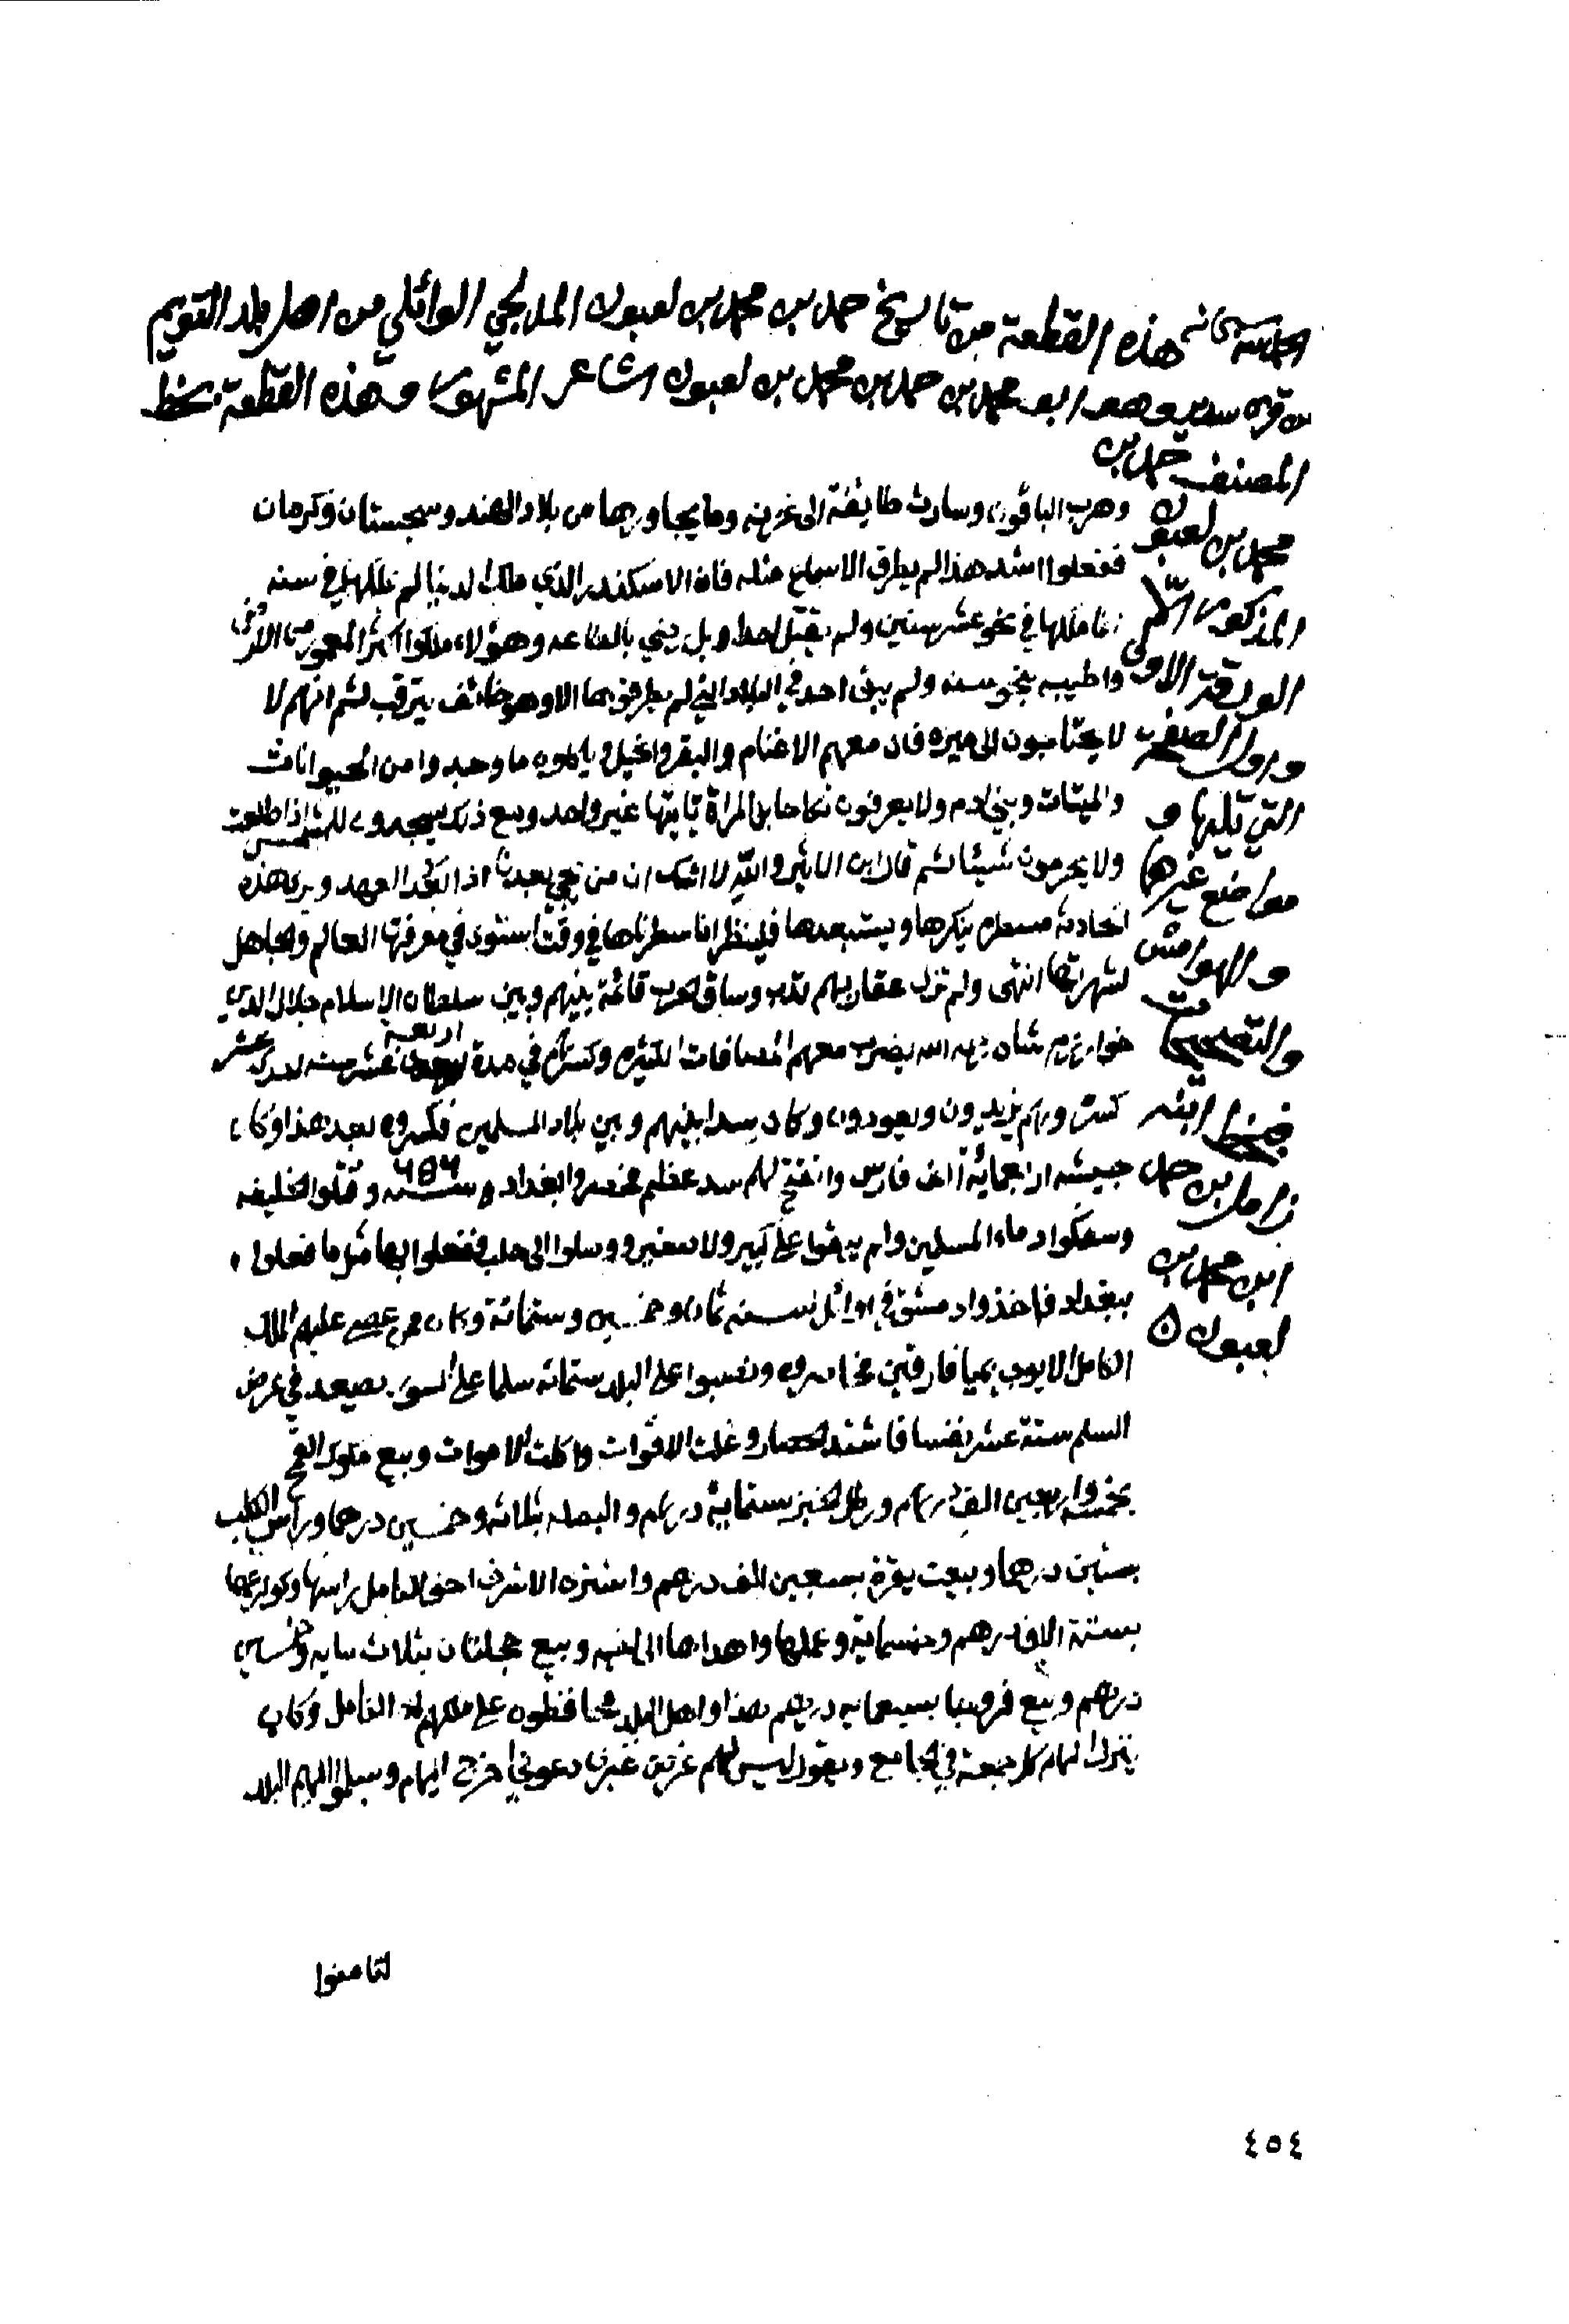 الحمد لله سبحانه هذه القطعة من تاريخ حمد بن محمد بن لعبون المدلجي الوائلي من اهل بلد التويم
من قرى سدير وهو ابو محمد بن حمد بن محمد بن لعبون الشاعر المشهور وهذه القطعة بخط
المصنف حمد بن
محمد بن لعبون
المذكور الا
الورقة الاولى
والتي تليها و
مواضع غيرها
والهوامش
فبخط ابنه
زامل بن حمد
ابن محمد بن
لعبون ه
وهرب الباقون وسارت طايفة الى غزنه وما يجاورها من بلاد الهند وسجستان وكرمان
ففعلوا اشد هذا لم يطرق الاسماع مثله فان الاسكندر الذي ملك الدنيا لم يملكها في سنه
انما ملكها في نحو عشر سنين ولم يقتل احدا بل رضي بالطاعه وهؤلاء ملكوا اكثر المعمور من الارض
واطيبه بنحو سنه ولم يبق احد في البلاد التي لم يطرقوها الا وهو خائف يترقب ثم انهم لا
لا يحتاجون الى ميره فان معهم الاغنام والبقر والخيل وياكلون ما وجدوا من الحيوانات
والميتات وبني ادم ولا يعرفون نكاحا بل المراة ياتيها غير واحد ومع ذلك يسجدون للشمس اذا طلعت
ولا يحرمون شيئا ثم قال ابن الاثير والله لا اشك ان من يجي بعدنا اذا بعد العهد ويرى هذه
الحادثة مسطره ينكرها ويستبعدها فلينظر انا سطرناها في وقت استوى في معرفتها العالم والجاهل
لشهرتها انتهى ولم تزل عقاربهم تدب وساق الحرب قائمة بينهم وبين سلطان الاسلام جلال الدين
خوارزم شاه رحمه الله يضرب معهم المصافات الكثيره وكسرهم في مدة اربعة عشر سنه
كسرة وهم يزيدون ويعودون وكان سدا بينهم وبين بلاد المسلمين فكسروه بعد هذا وكان
جيشه اربعمائة الف فارس وانفتح لهم سد عظيم فحصروا بغداد سنة ٦٥٦ وقتلوا الخليفه
وسفكوا دماء المسلمين ولم يبقوا على كبير ولا صغير ووصلوا الى حلب ففعلوا بها مثل ما فعلوا
ببغداد فاخذوا دمشق في اوائل سنه ثمان وخمسين وستمائة وكان ممن عصى عليهم الملك
الكامل الايوبي بميافارقين فحاصروه ونصبوا على البلد ستمائه سلما على السور يصعد في عرض
السلم ستة عشر نفسا فاشتد الحصار وغلت الاقوات واكلت الاموات وبيع مكوك القمح
بخمسه واربعين الف درهم ورطل الخبز بستماية درهم والبصله بثلاثه وخمسين درهما وراس الكلب
بستين درهما وبيعت بقرة بسبعين الف درهم واشترى الاشرف اخو الكامل راسها وكوارعها
بستة الاف درهم وخمسماية وبيع عجلتان بثلاث مايه وخمسين
درهم وبيع فروجا بسبعمايه درهم هذا واهل البلد محافظون على ملكهم الكامل وكان
ينزل لهم كل جمعة في الجامع ويقول ليس لهم غرض غيري دعوني اخرج اليهم وسلموا اليهم البلد
لتامنوا
٤٥٤